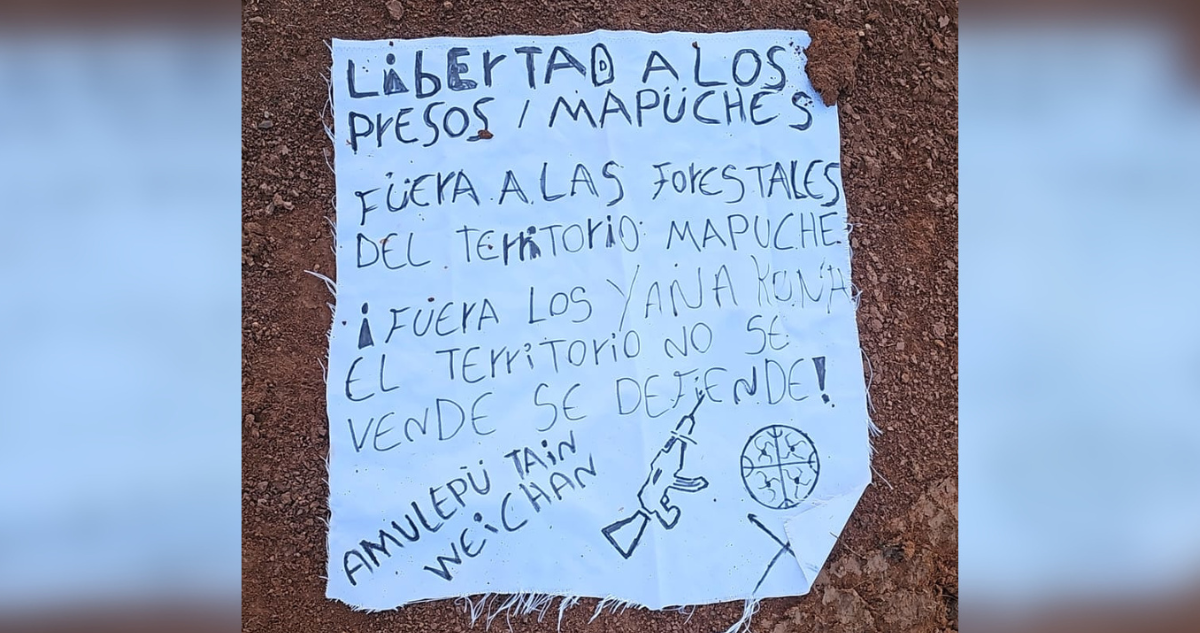 LIBERTAD A LOS
PRESOS / MAPUCHES
FUERA A LAS FORESTALES
DEL TERRITORIO MAPUCHE
¡FUERA LOS YANA KUNA
EL TERRITORIO NO SE
VENDE SE DEFIENDE!
AMULEPÜ TAIN
WEICHAN